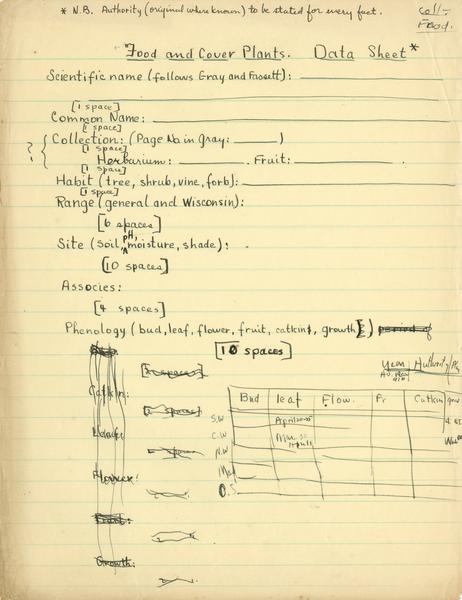 * N.B. Authority (original where known) to be stated for every fact.
Coll-
Food.
"Food and Cover Plants. Data Sheet*
Scientific name (follows Gray and Fassett):
[1 space]
Common Name:
[1 space]
? { Collection: (Page No. in Gray: )
[1 space]
Herbarium: . Fruit: .
[1 space]
Habit (tree, shrub, vine, forb):
[1 space]
Range (general and Wisconsin):
[6 spaces]
Site (Soil, pH, moisture, shade): .
[10 spaces]
Associes:
[4 spaces]
Phenology (bud, leaf, flower, fruit, catkins, growth) period of
[10 spaces]
[2 spaces]
Year Authority
Catkin:
Bud leaf Flow. Fr Catkin grow
[2 spaces]
S.W April 20-25
Leaf:
C.W
[spaces]
N.W
Flower:
O.S.
Fruit:
Growth: